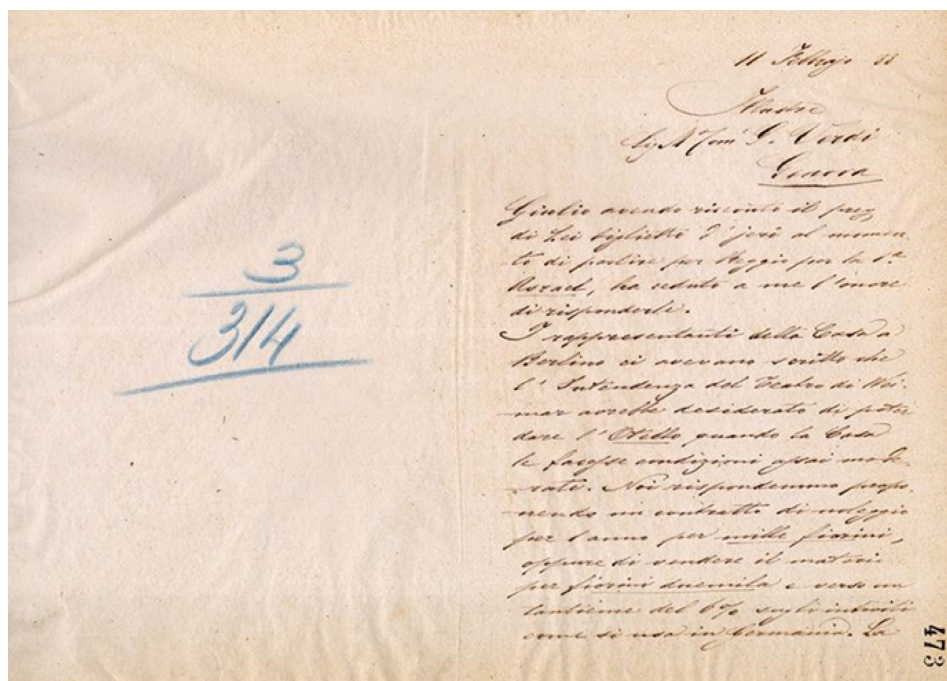 3
314
11 Febbrajo 88
Illustre
Sig. M. Com. G. Verdi
Genova
Giulio avendo ricevuto il preg
di Lei biglietto d'jeri al momen-
to di partire per Reggio per la 1ª
Asrael, ha ceduto a me l'onore
di risponderle.
I rappresentanti della Casa a
Berlino ci avevano scritto che
l'Intendenza del Teatro di Wei-
mar avrebbe desiderato di poter
dare l'Otello quando la Casa
le facesse condizioni assai mode-
rate. Noi rispondemmo propo-
nendo un contratto di noleggio
per l'anno per mille fiorini,
oppure di vendere il materi
per fiorini duemila e verso un
tantième del 6% sugli introiti
come si usa in Germania. La
473